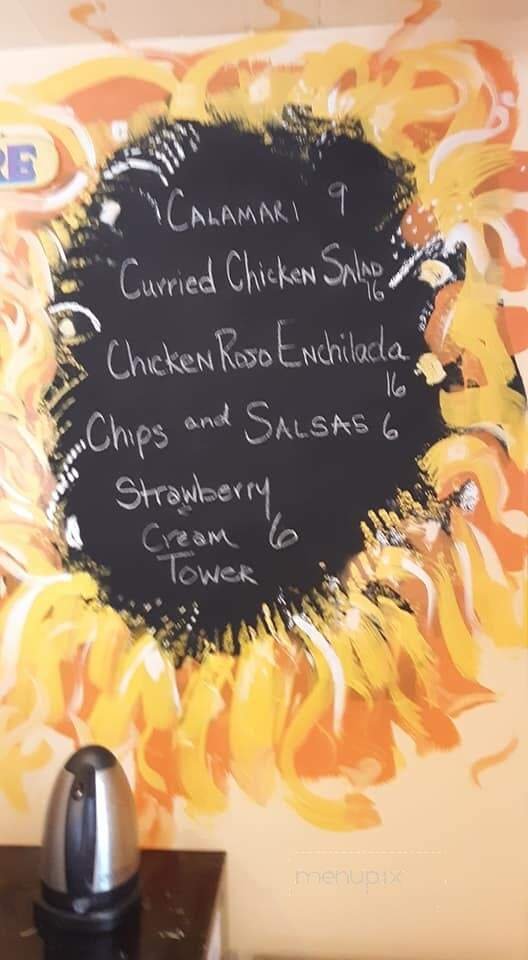 RE
CALAMARI 9
Curried Chicken SALAD
16
Chicken Roso Enchilada
16
Chips and SALSAS 6
Strawberry
Cream 6
TOWER
menupix